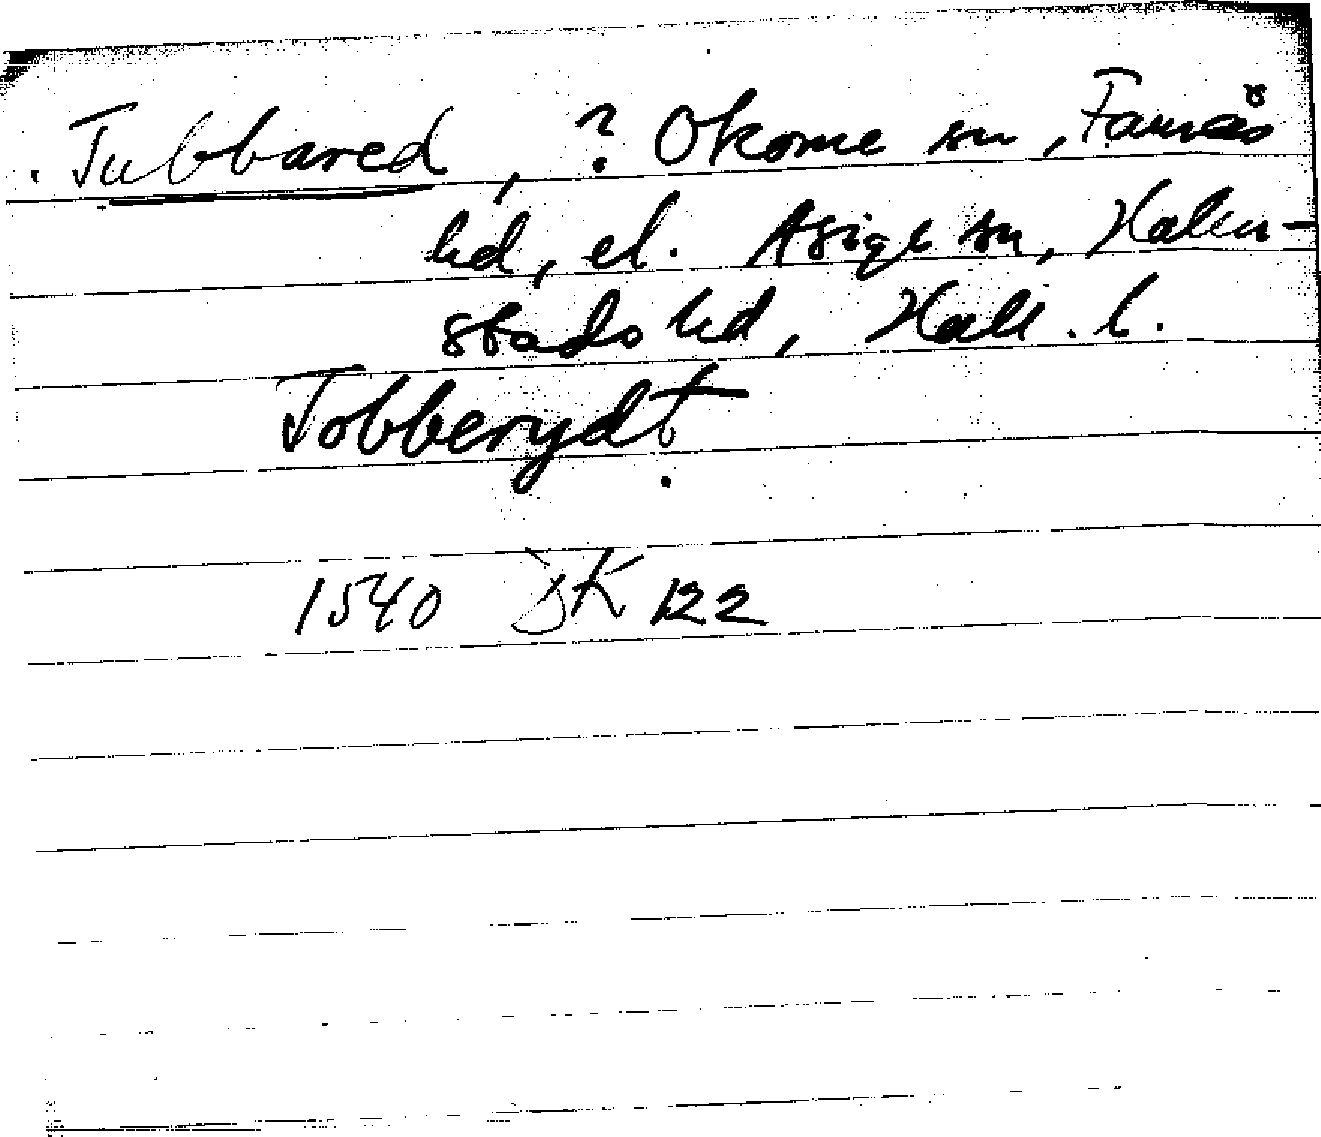 Tubbared, ? Okome sn, Faurås
hd, el. Asige sn, Halm-
stads hd, Hall. l.
Tobberydt
1540 JK 122